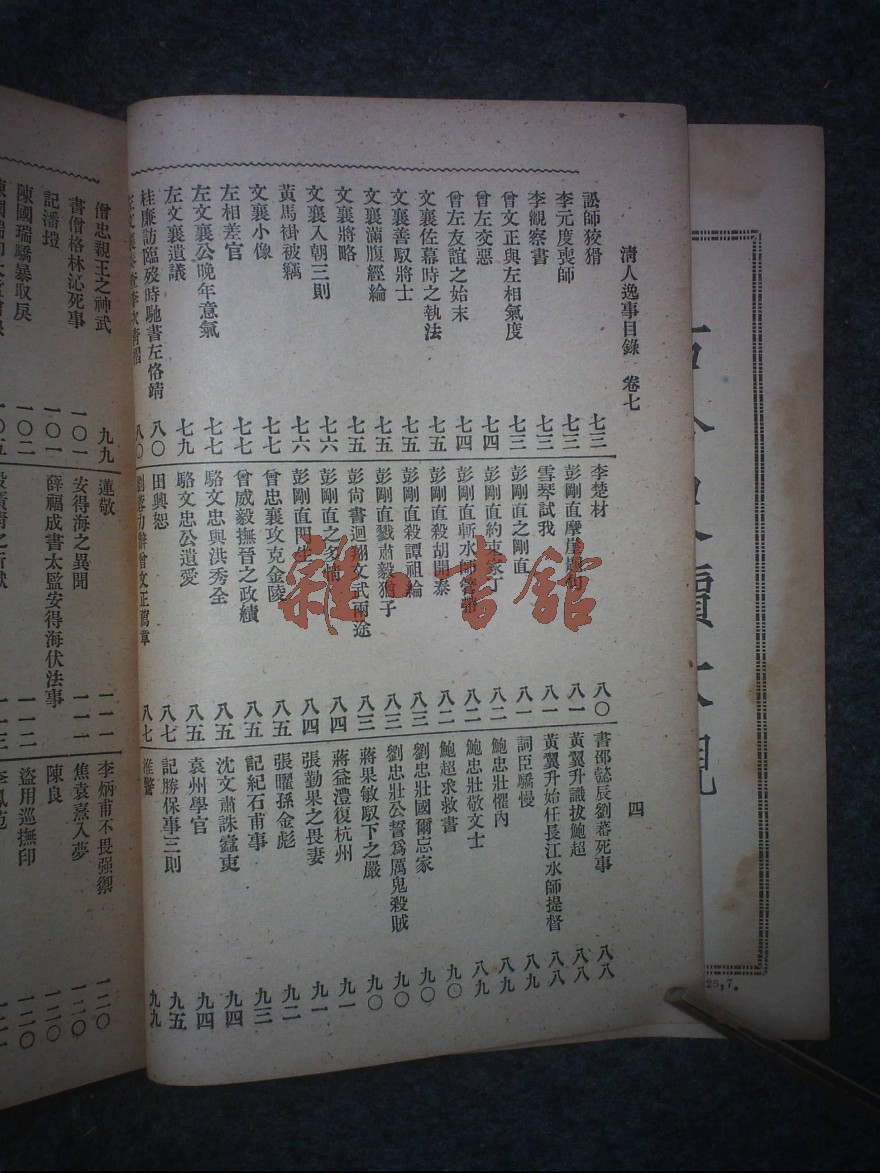 清人逸事目錄 卷七
四
訟師狡猾 七三
李元度喪師 七三
李觀察書 七三
曾文正與左相氣度 七三
曾左交惡 七四
曾左友誼之始末 七四
文襄佐幕時之執法 七五
文襄善馭將士 七五
文襄滿腹經綸 七五
文襄將略 七五
文襄入朝三則 七六
黃馬褂被竊 七六
文襄小像 七七
左相差官 七七
左文襄公晚年意氣 七七
左文襄遺議 七九
桂廉訪臨歿時馳書左恪靖 八〇
八〇
李楚材 八〇
彭剛直摩崖 八一
雪琴試我 八一
彭剛直之剛直 八一
彭剛直約束家丁 八二
彭剛直斬水師 八二
彭剛直殺胡開泰 八二
彭剛直殺譚祖綸 八三
彭剛直戮肅毅猶子 八三
彭尚書迴翔文武兩途 八三
彭剛直之多情 八四
彭剛直門生 八四
曾忠襄攻克金陵 八五
曾威毅撫晉之政績 八五
駱文忠與洪秀全 八五
駱文忠公遺愛 八五
田興恕 八七
劉蓉力辯曾文正薦章 八七
書邵懿辰劉蕃死事 八八
黃翼升識拔鮑超 八八
黃翼升始任長江水師提督 八八
詞臣驕慢 八九
鮑忠壯懼內 八九
鮑忠壯敬文士 八九
鮑超求救書 九〇
劉忠壯國爾忘家 九〇
劉忠壯公誓爲厲鬼殺賊 九〇
蔣果敏馭下之嚴 九〇
蔣益澧復杭州 九一
張勤果之畏妻 九一
張曜孫金彪 九二
記紀石甫事 九三
沈文肅誅蠹吏 九四
袁州學官 九四
記勝保事三則 九五
九九
僧忠親王之神武 九九
書僧格林沁死事 一〇一
記潘塏 一〇一
陳國瑞驕暴取戾 一〇二
一〇五
蓮敬
安得海之異聞 一一一
薛福成書太監安得海伏法事 一一一
一一二
一一三
李炳甫不畏强禦 一二〇
焦袁熹入夢 一二〇
陳良 一二〇
盜用巡撫印 一二〇
雜·書館
25,7.